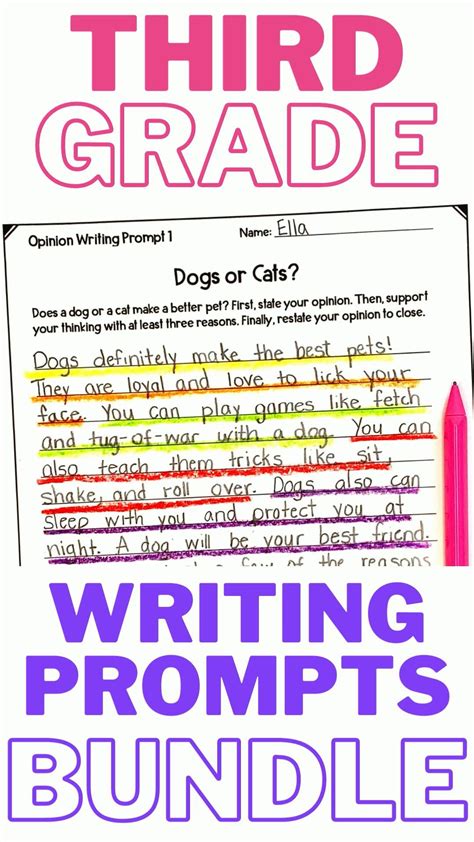 THIRD
GRADE
Opinion Writing Prompt 1 Name: Ella
Dogs or Cats?
Does a dog or a cat make a better pet? First, state your opinion. Then, support
your thinking with at least three reasons. Finally, restate your opinion to close.
Dogs definitely make the best pets!
They are loyal and love to lick your
face. You can play games like fetch
and tug-of-war with a dog. You can
also teach them tricks like sit,
shake, and roll over. Dogs also can
sleep with you and protect you at
night. A dog will be your best friend.
few of the reasons
WRITING
PROMPTS
BUNDLE